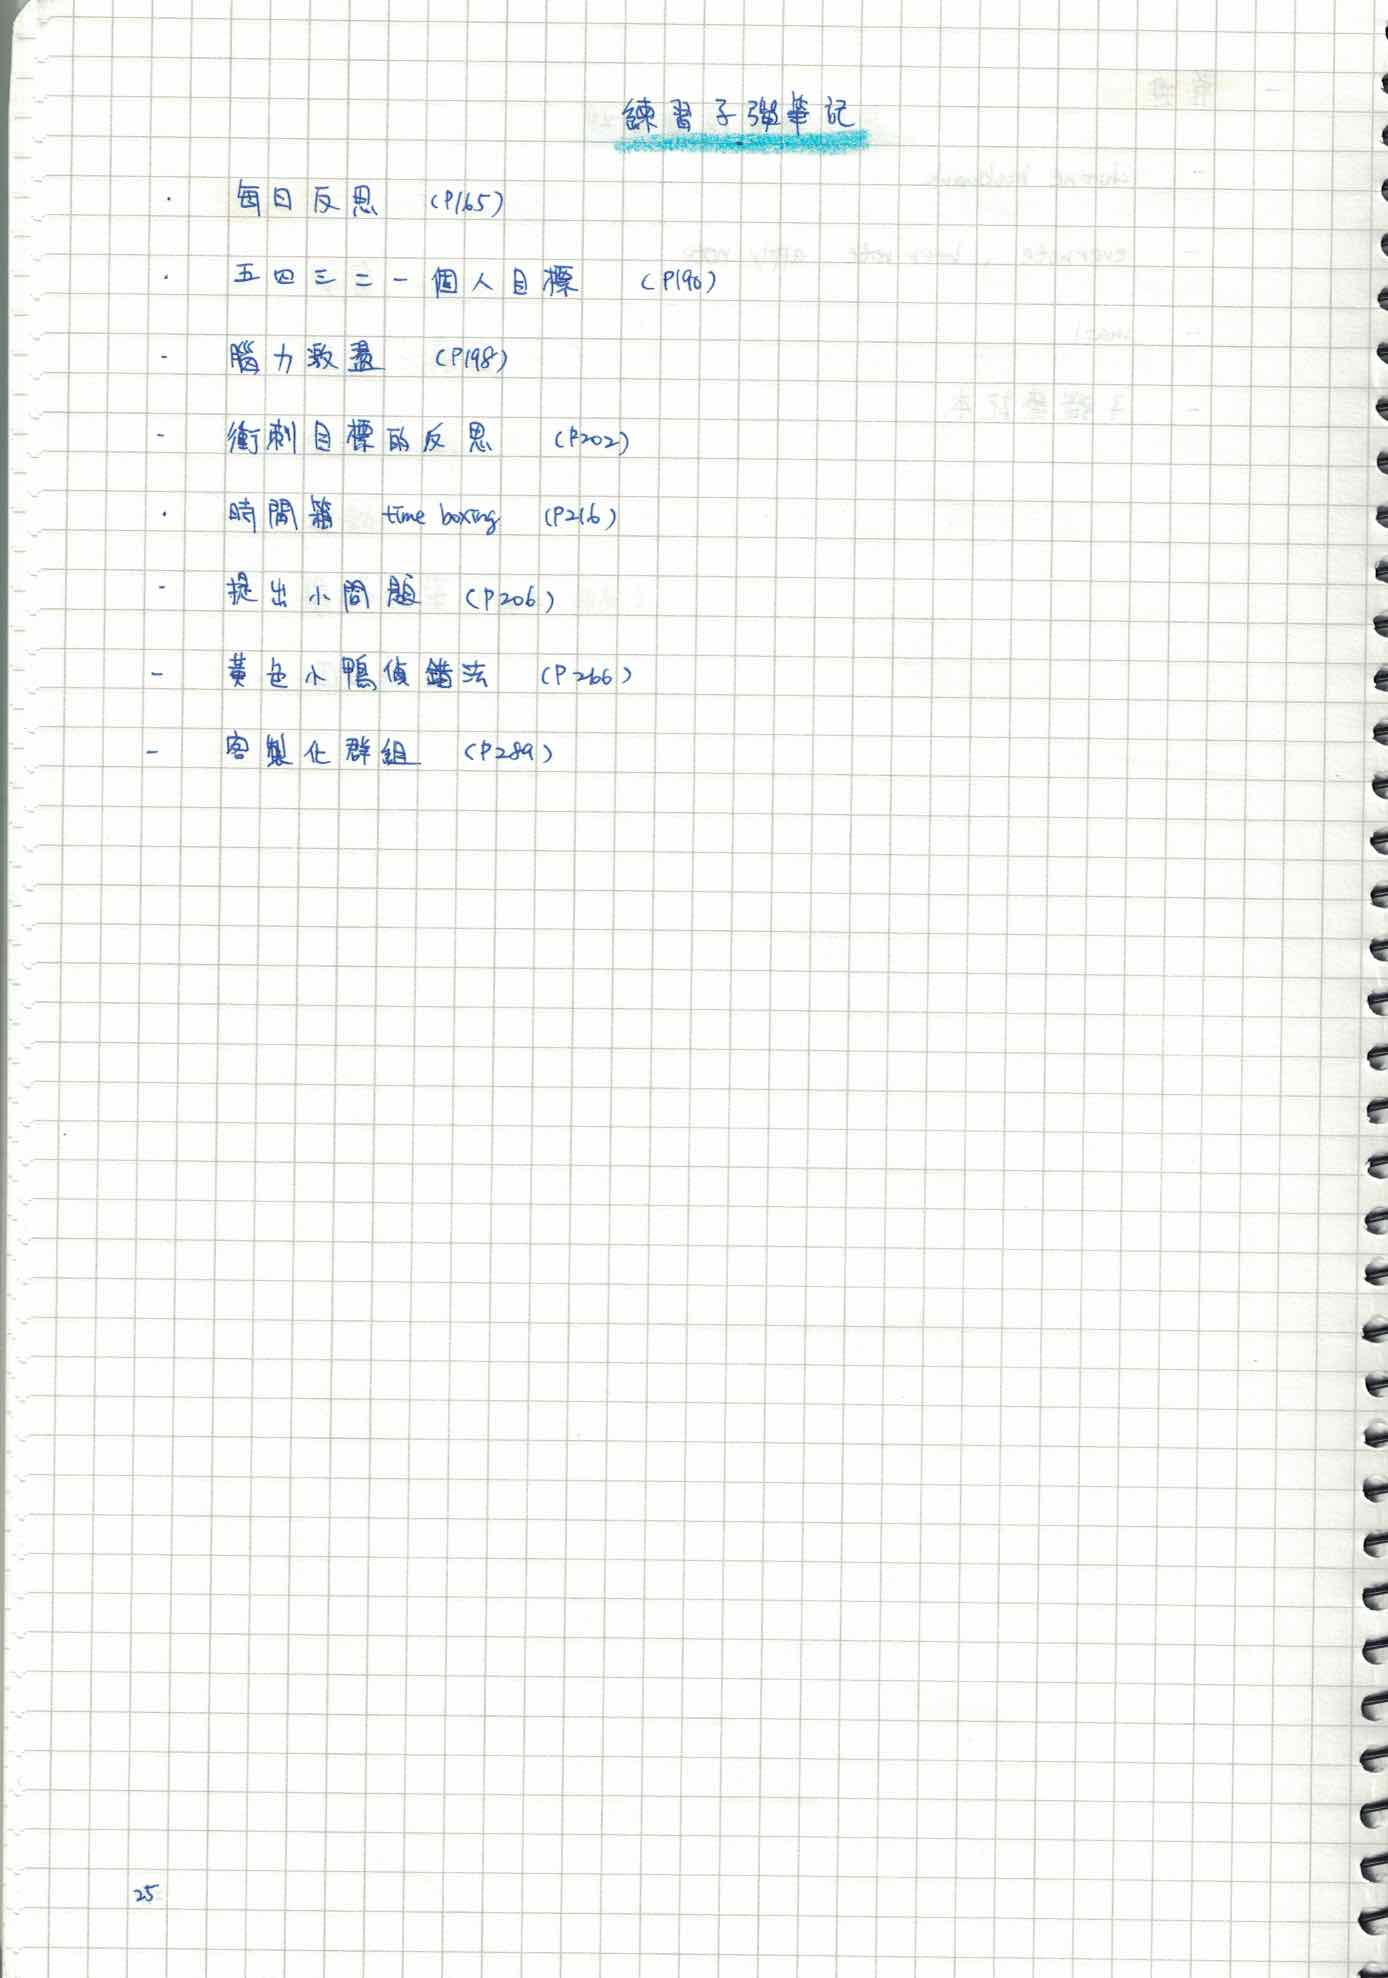 練習子彈筆記
· 每日反思 (P165)
· 五四三二一個人目標 (P190)
- 腦力激盪 (P198)
- 衝刺目標的反思 (P202)
· 時間箱 time boxing (P216)
- 提出小問題 (P206)
- 黃色小鴨偵錯法 (P266)
- 客製化群組 (P289)
25